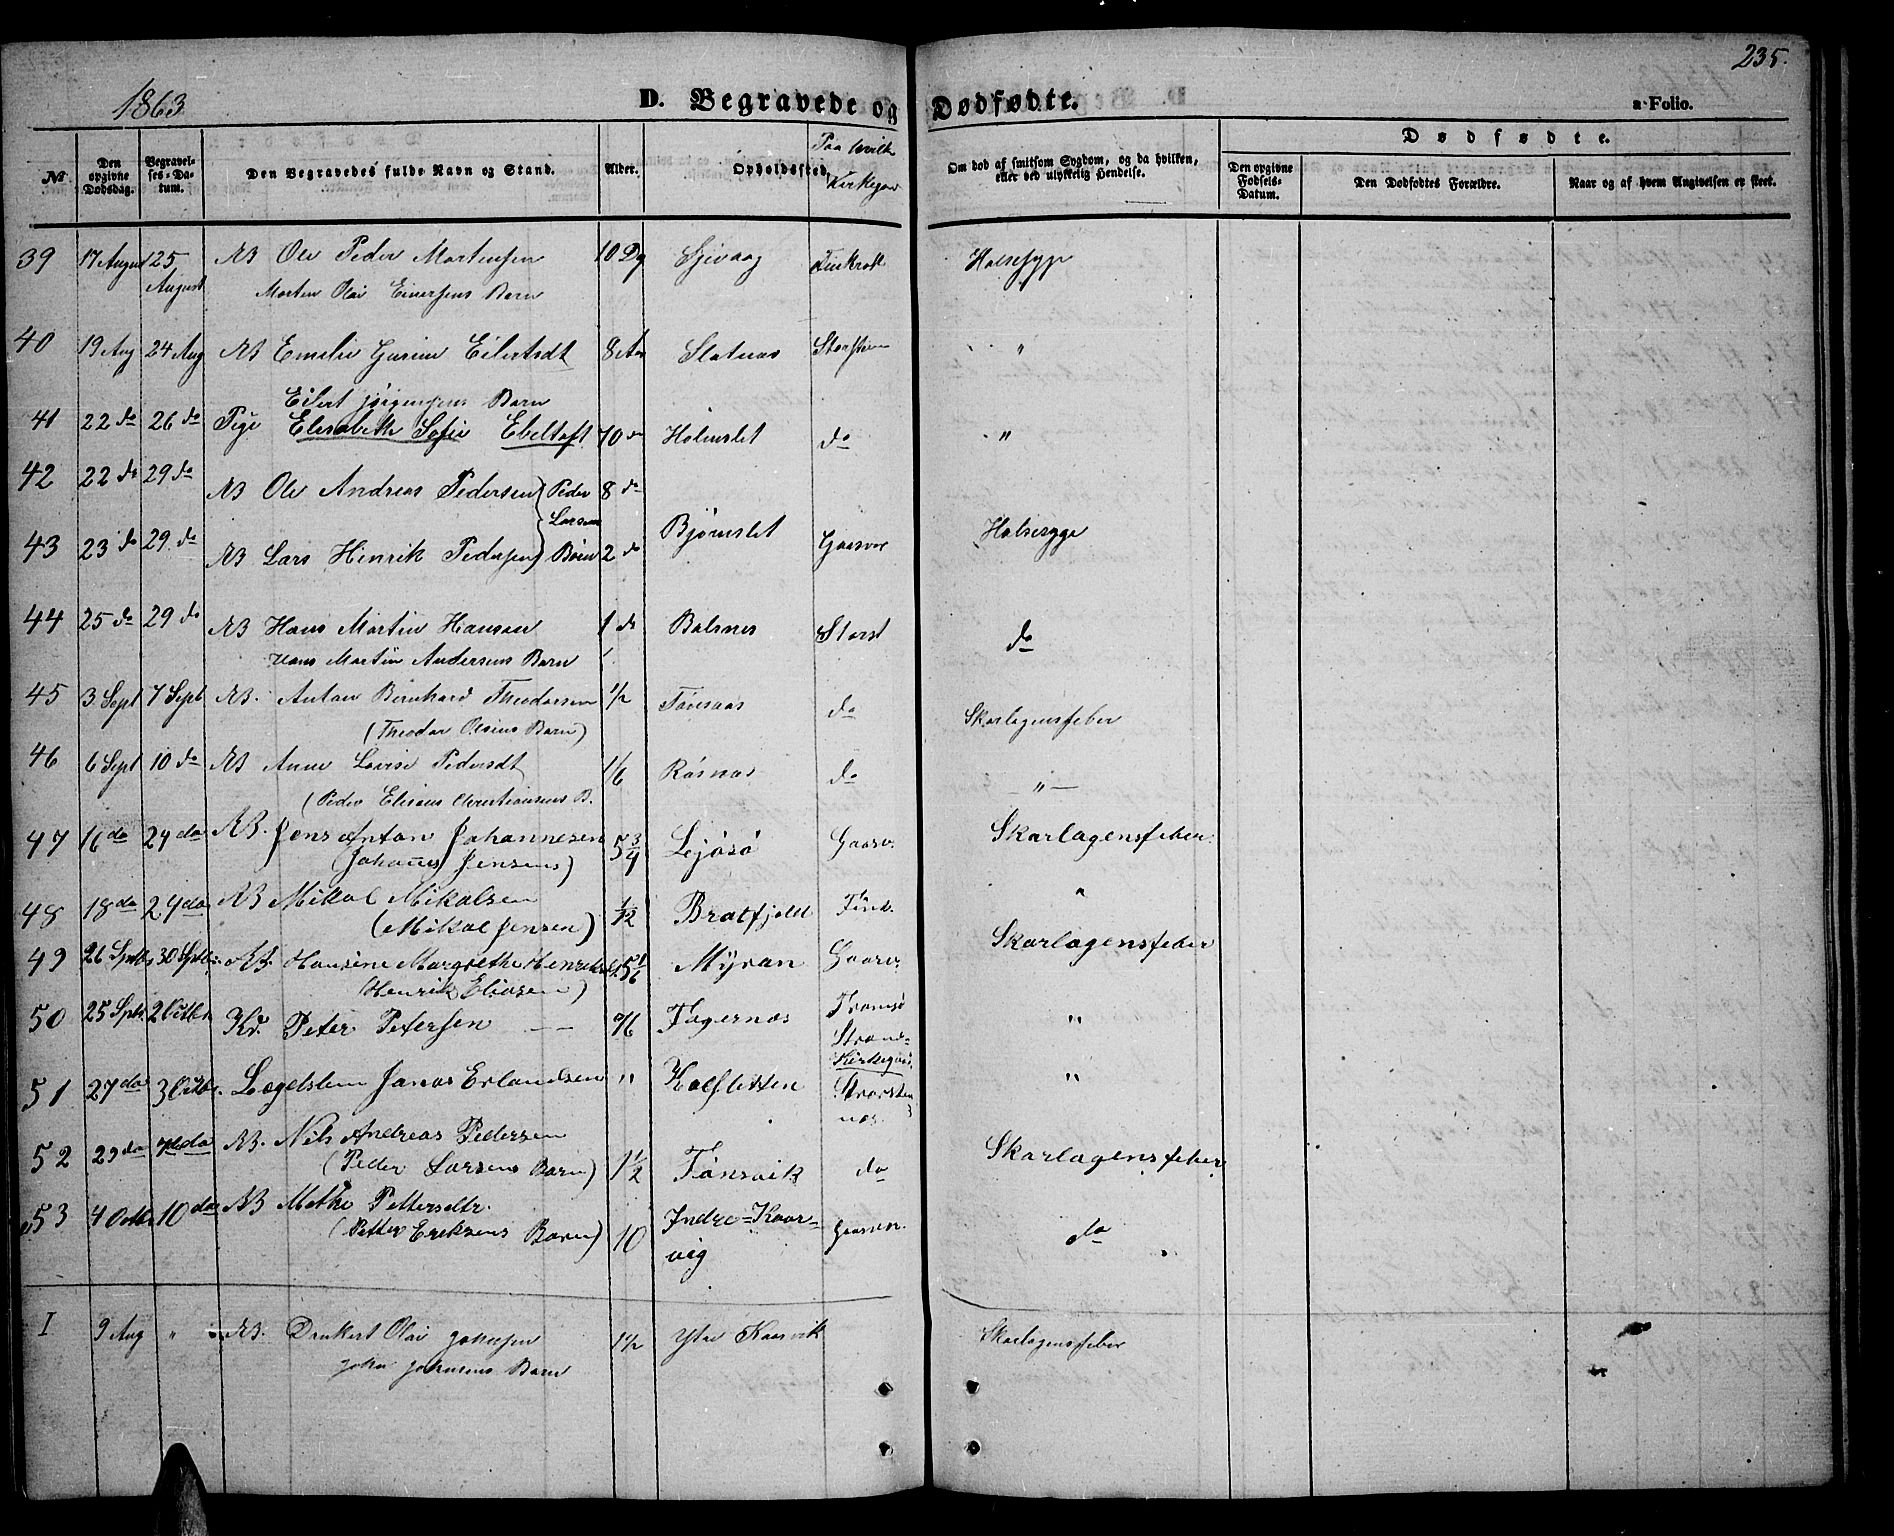 1863
D. Begravede og Dødfødte.
235.
a Folio.
№
Den opgivne Dødsdag.
Begravelses-Datum.
Den Begravedes fulde Navn og Stand.
Alder.
Opholdssted.
Paa hvilk Kirkegar
Om død af smitsom Sygdom, og da hvilken, eller ved ulykkelig Hendelse.
Dødfødte.
Den opgivne Fødsels-Datum.
Den Dødfødtes Forældre.
Naar og af hvem Angivelsen er skeet.
39 17 August 25 August NB Ole Peder Mortensen 10 Dg Finkrok Halsesyge
Morten Olai Einersens Barn
40 19 Aug 24 Aug NB Emelie Eilertsdt 8 Aar Slatnæs Storsten "
Eilert Jørgensens Barn
41 22 do 26 do Pige Elisabeth Sofie Ebeltoft 70 do Holmslet do "
42 22 do 29 do NB Ole Andreas Pedersen } Peder 8 do
Larsens
43 23 do 29 do NB Lars Henrik Pedersen } Børn 2 do Bjørnslet Gaasvær Halsesyge
44 25 do 29 do NB Hans Martin Hansen 1 do Balsnes Storst do
Hans Martin Andersens Barn
45 3 Sept 7 Sept NB. Anton Bernhard Theodorsen 1/2 Tønsaas do Skarlagensfeber
(Theodor Olsens Barn)
46 6 Sept 10 do NB Anne Lovise Pedersdt 1/6 Røsnæs do "
(Peder Elisæus Christiansens B.
47 16 do 24 do NB. Jens Anton Johannesen 5 3/4 Lejøsø Gaasv. Skarlagensfeber.
(Johannes Jensens)
48 18 do 24 do NB Mikal Mikalsen 1/12 Bratfjeld Fink. "
(Mikal Jensen)
49 26 Sptb 30 Sptb NB. Hansine Margrethe Henriksd. 5 1/6 Myran Gaasv. Skarlagensfeber
(Henrik Eliasen)
50 25 Sptb 2 Octbr Kr. Peter Petersen Fagernæs Tromsø Strand-Kirkegaar "
51 27 do 3 Octbr. Lægdslem Jonas Erlandsen " Kalfletten Storstennæs. "
52 29 do do NB. Nils Andreas Pedersen 1 1/2 Tønsvik do Skarlagensfeber
(Peder Larsens Barn)
53 4 Octbr 10 do NB Methe Pettersdtr. 10 Indre-Kaarvig Gaasvær. do
(Petter Eriksens Barn)
I 9 Aug " NB. Drukert Olai Johnsen 1 1/2 Ytre Kaarvik Skarlagensfeber
John Johnsens Barn